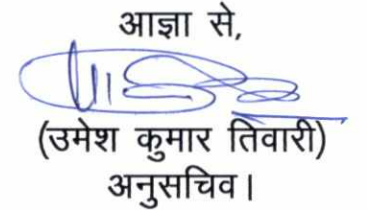 आज्ञा से,
(उमेश कुमार तिवारी)
अनुसचिव।